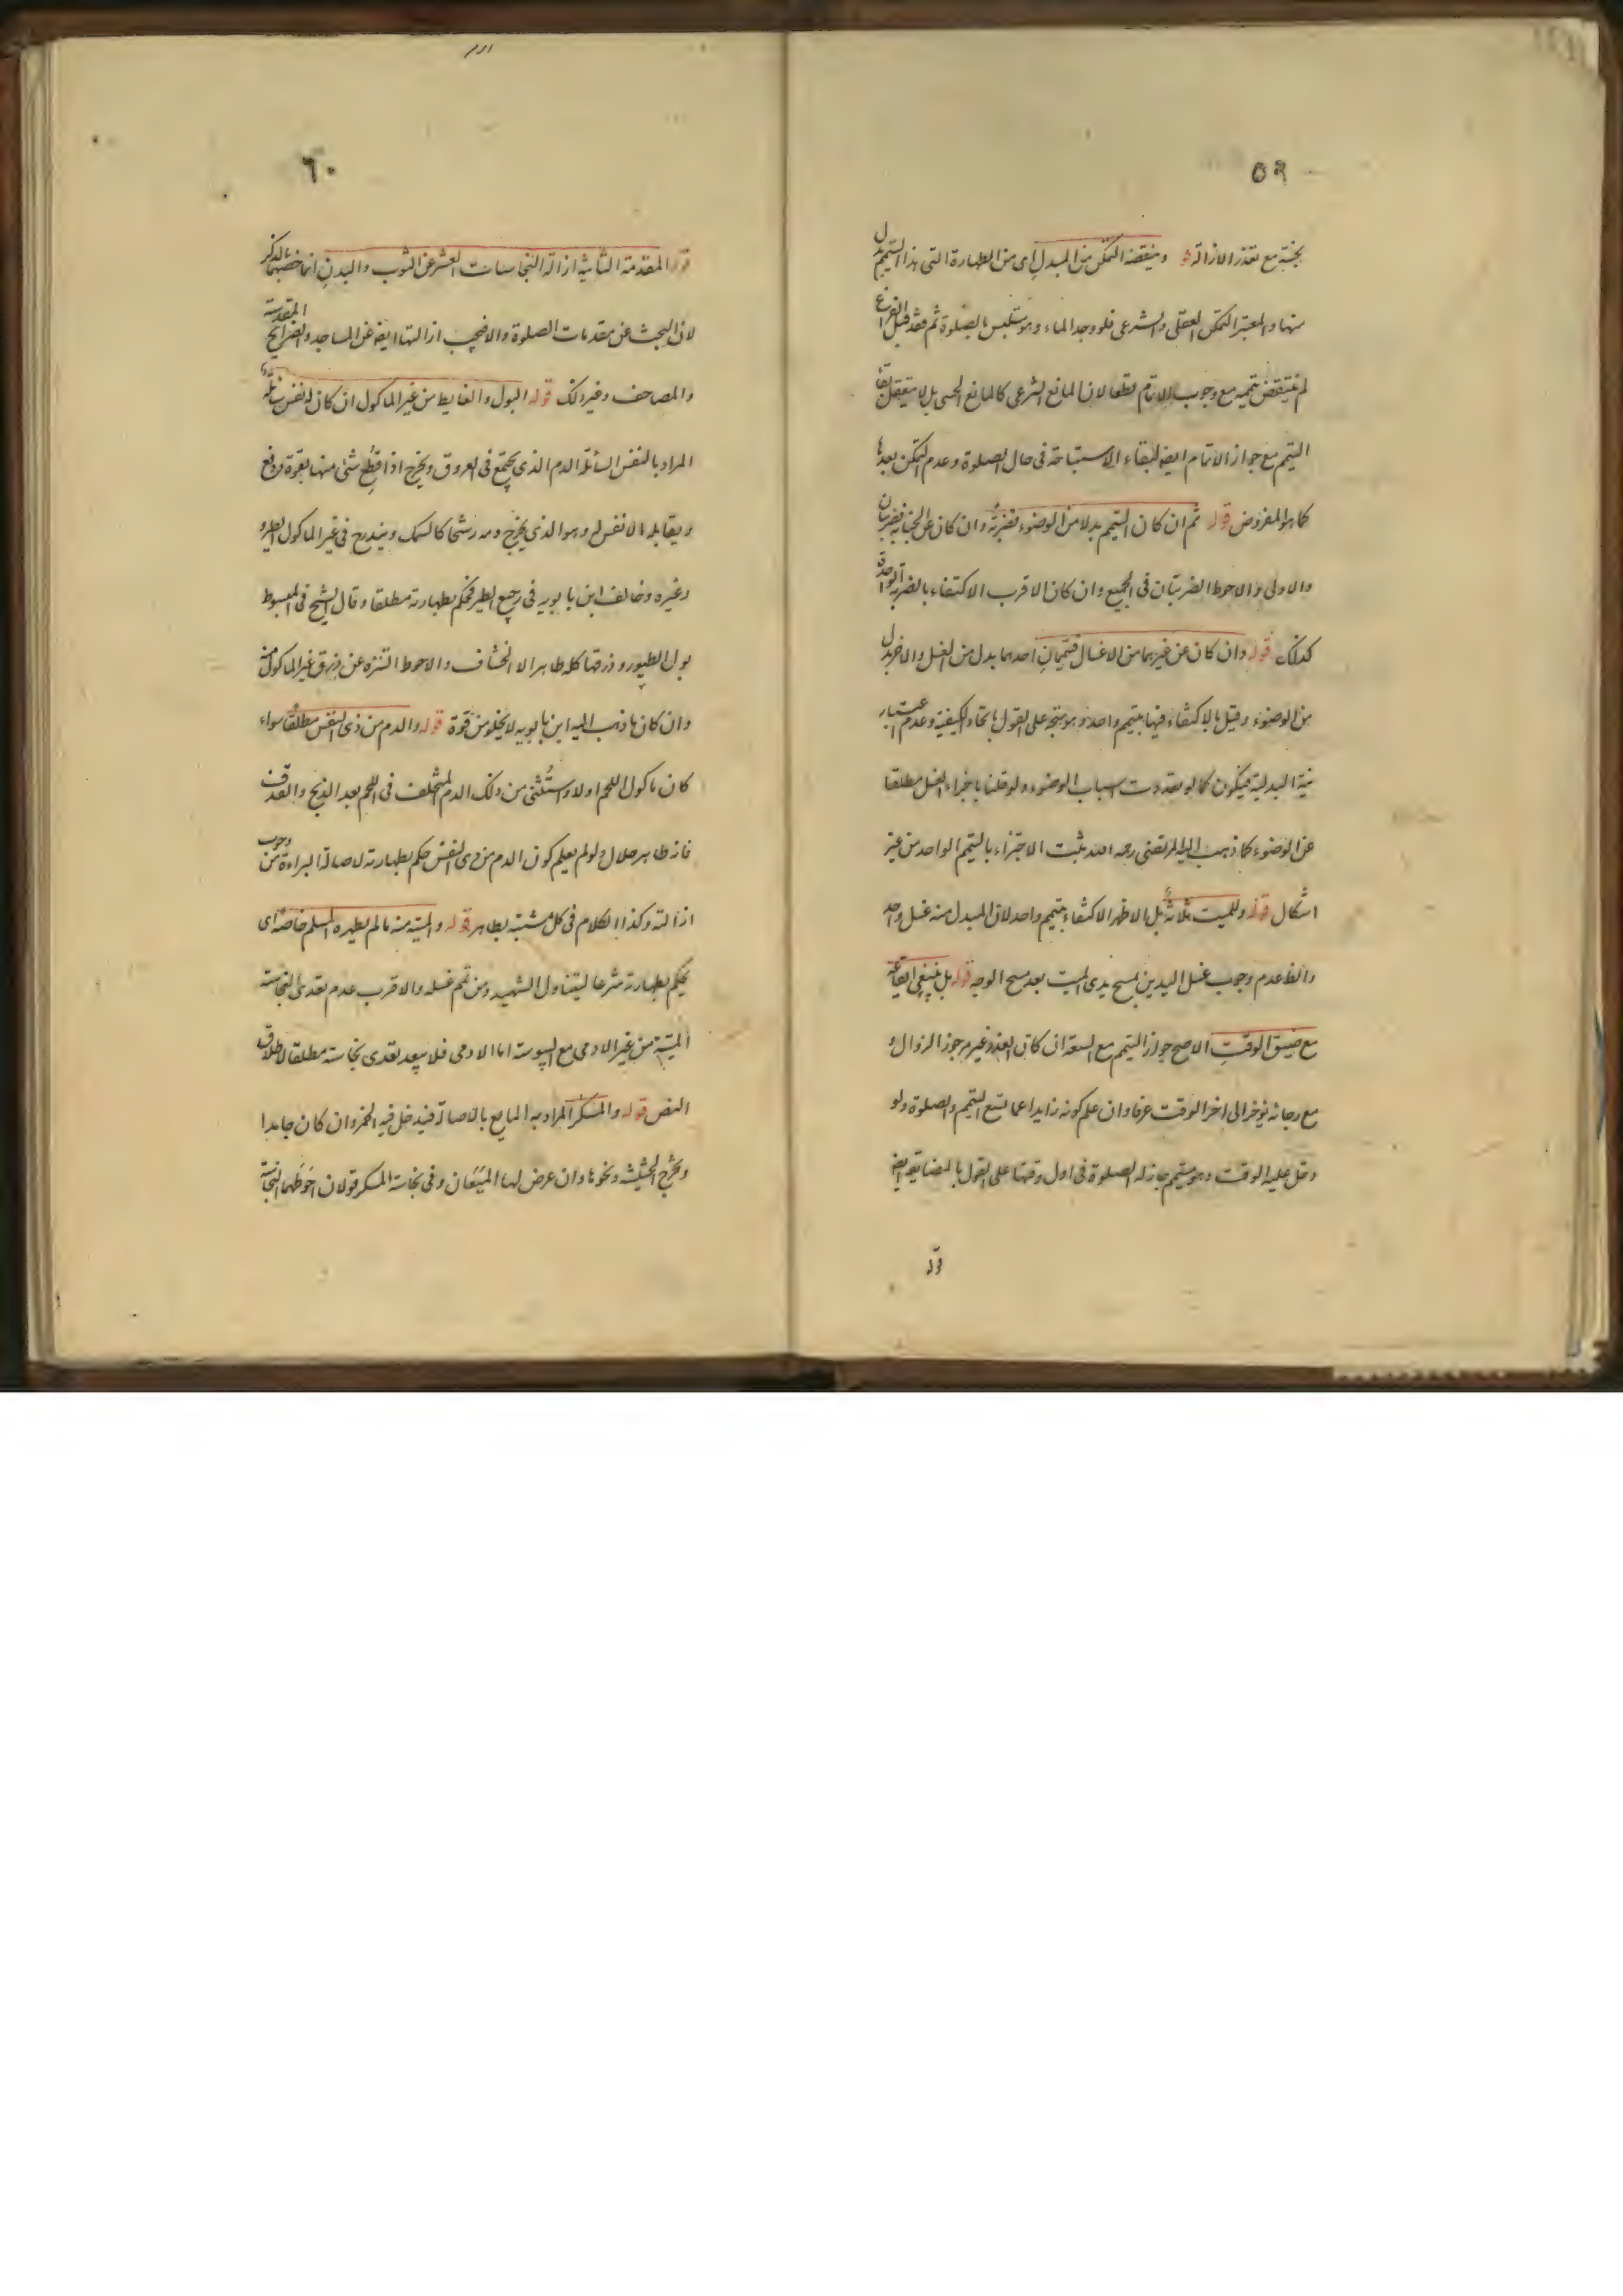 ٥٩
بخبثية مع تعذر الازالة قوله وينقضه التمكن من المبدل اى من الطهارة التى هذا التيمم بدل
منها والمعتبر التمكن العقلى والشرعى فلو وجد الماء وهو متلبس بالصلوة ثم فقد قبل الفراغ
لم ينتقض تيممه مع وجوب الاتمام قطعا لان المانع الشرعى كالمانع الحسى بل لا ينتقض
التيمم مع جواز الاتمام ايضه لبقاء الاستباحة فى حال الصلوة وعدم التمكن بعدها
كما هو المفروض قوله ثم ان كان التيمم بدلا من الوضوء فضربة وان كان عن الجنابة فضربتان
والاولى والاحوط الضربتان فى الجميع وان كان الاقرب الاكتفاء بالضربة الواحدة
كذلك قوله وان كان عن غيرهما من الاغسال فتيممان احدهما بدل من الغسل والاخر بدل
من الوضوء وقيل بالاكتفاء فيها بتيمم واحد وهو متجه على القول باتحاد الكيفية وعدم اعتبار
نية البدلية فيكون كما لو تعددت اسباب الوضوء ولو قلنا باجزاء الغسل مطلقا
عن الوضوء كما ذهب اليه المرتضى رحمه الله ثبت الاجتزاء بالتيمم الواحد من غير
اشكال قوله وللميت ثلاثة بل الاظهر الاكتفاء بتيمم واحد لان المبدل منه غسل واحد
والظ عدم وجوب غسل اليدين بمسح يدى الميت بعد مسح الوجه قوله بل ينبغى ايقاعه
مع ضيق الوقت الاصح جواز التيمم مع السعة ان كان العذر غير مرجو الزوال و
مع رجائه يؤخر الى اخر الوقت عرفا وان علم كونه زايدا عما يسع التيمم والصلوة ولو
دخل عليه الوقت وهو متيمم جاز له الصلوة فى اول وقتها على القول بالمضايقة ايضه
قوله
٦٠
قوله المقدمة الثانية ازالة النجاسات العشر عن الثوب والبدن انما خصهما بالذكر
لان البحث عن مقدمات الصلوة والا فيجب ازالتها ايضه عن المساجد والضرايح المقدسة
والمصاحف وغير ذلك قوله البول والغايط من غير الماكول ان كان له نفس سائلة
المراد بالنفس السائلة الدم الذى يجتمع فى العروق ويخرج اذا قطع شئ منها بقوة ودفع
ويقابله ما لا نفس له وهو الذى يخرج دمه رشحا كالسمك ويندرج فى غير الماكول الطير
وغيره وخالف ابن بابويه فى رجيع الطير فحكم بطهارته مطلقا وقال الشيخ فى المبسوط
بول الطيور وذرقها كله طاهر الا الخشاف والاحوط التنزه عن ذرق غير الماكول منه
وان كان ما ذهب اليه ابن بابويه لا يخلو من قوة قوله والدم من ذى النفس مطلقا سواء
كان ماكول اللحم او لا ويستثنى من ذلك الدم المتخلف فى اللحم بعد الذبح والقذف
فانه طاهر حلال ولو لم يعلم كون الدم من ذى النفس حكم بطهارته لاصالة البراءة من وجوب
ازالته وكذا الكلام فى كل مشتبه بطاهر قوله والميتة منه ما لم يطهره المسلم خاصة اى
يحكم بطهارته شرعا ليتناول الشهيد ومن تم غسله والاقرب عدم تعدى النجاسة
الميتة من غير الادمى مع اليبوسة اما الادمى فلا يبعد تعدى نجاسته مطلقا لاطلاق
النص قوله والمسكر المراد به المايع بالاصالة فيدخل فيه الخمر وان كان جامدا
ويخرج الحشيشة ونحوها وان عرض لها الميعان وفى نجاسة المسكر قولان احوطهما النجاسة